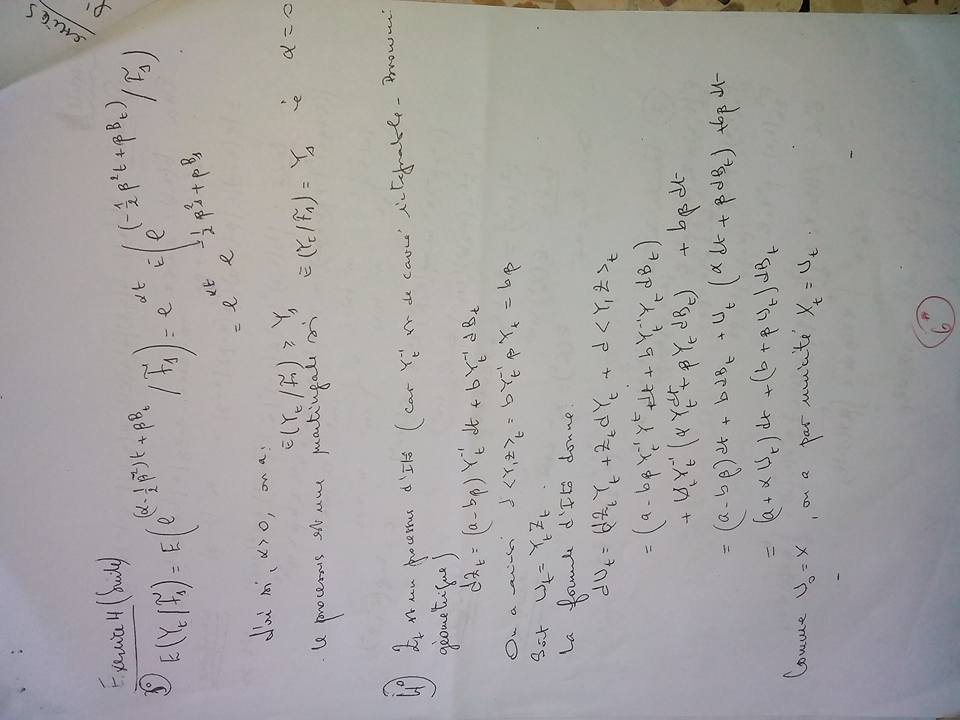 Exercice 4 (Suite)
3°) E(Y_t / F̃_s) = E(e^{(α - 1/2 β²)t + βB_t} / F̃_s) = e^{αt} E(e^{(-1/2 β²t + βB_t)} / F̃_s)
= e^{αt} e^{-1/2 β²s + βB_s}
d'où si, α>0, on a:
E(Y_t / F̃_s) ≥ Y_s
. le processus est une martingale si E(Y_t / F̃_s) = Y_s ie α = 0
4°) Z_t est un processus d'Itô (car Y_t^{-1} est de carré intégrable - Brownien
géométrique)
dZ_t = (a - bβ) Y_t^{-1} dt + b Y_t^{-1} dB_t
On a aussi d<Y,Z>_t = b Y_t^{-1} β Y_t = bβ
Soit U_t = Y_t Z_t .
La formule d'Itô donne:
dU_t = dZ_t Y_t + Z_t dY_t + d<Y,Z>_t
= (a - bβ Y_t^{-1} Y_t dt + b Y_t^{-1} Y_t dB_t)
+ U_t Y_t^{-1} (α Y_t dt + β Y_t dB_t) + bβ dt
= (a - bβ) dt + b dB_t + U_t (α dt + β dB_t) + bβ dt
= (a + α U_t) dt + (b + β U_t) dB_t
Comme U_0 = x , on a par unicité X_t = U_t .
6